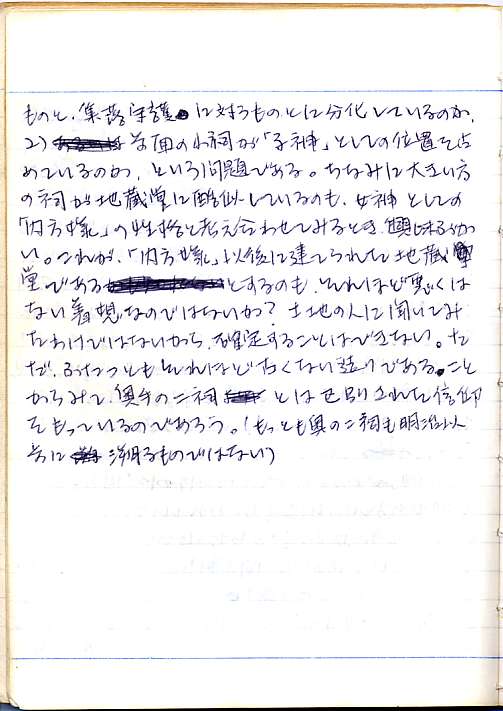 ものと、集落守護に対するものとに分化しているのか、
2) 前面の小祠が「子神」としての位置を占
めているのか、という問題である。ちなみに大きい方
の祠が地蔵堂に酷似しているのも、女神としての
「内方塚」の性格と考え合わせてみるとき、興味ぶか
い。これが、「内方塚」以後に建てられた地蔵
堂であるとするのも、それほど悪くは
ない着想なのではないか? 土地の人に聞いてみ
たわけではないから、確定することはできない。た
だ、ふたつともそれほど古くない造りである。こと
からみて、奥の二祠とは区別された信仰
をもっているのであろう。(もっとも奥の二祠も明治以
前に溯るものではない)